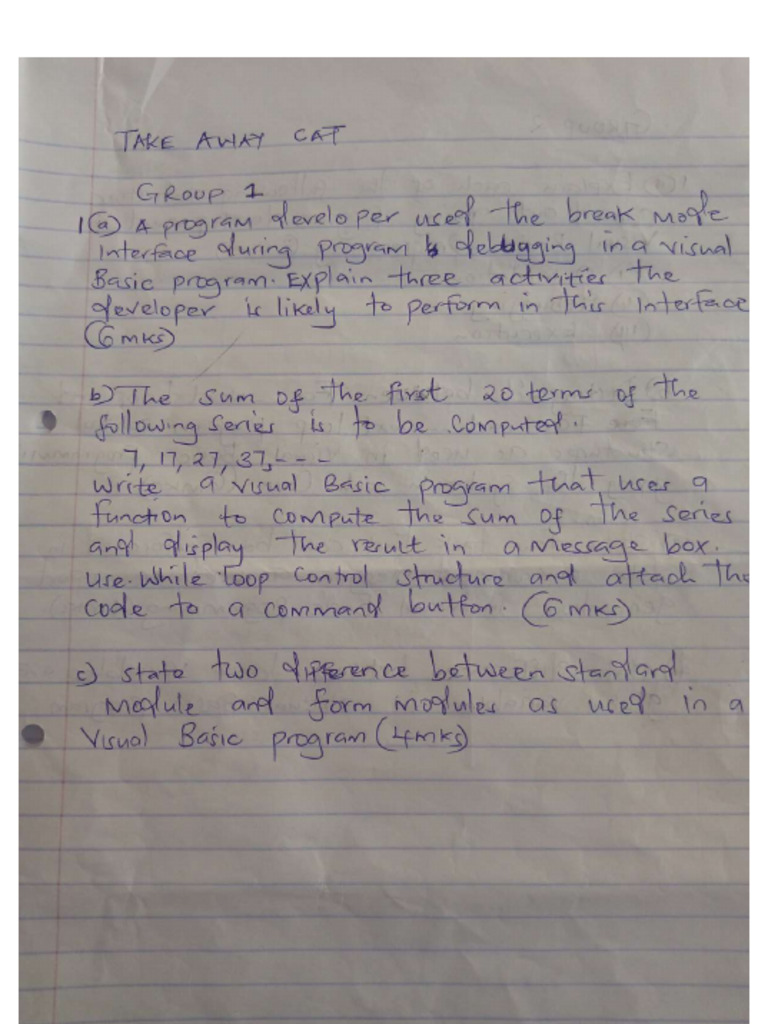 TAKE AWAY CAT
GROUP 1
1(a) A program developer used the break mode
Interface during program debugging in a visual
Basic program. Explain three activities the
developer is likely to perform in this Interface
(6mks)
b) The sum of the first 20 terms of the
following series is to be computed.
7, 17, 27, 37, - - -
Write a visual Basic program that uses a
function to compute the sum of the series
and display the result in a message box.
use. While loop control structure and attach the
code to a command button. (6mks)
c) state two difference between standard
Module and form modules as used in a
Visual Basic program (4mks)